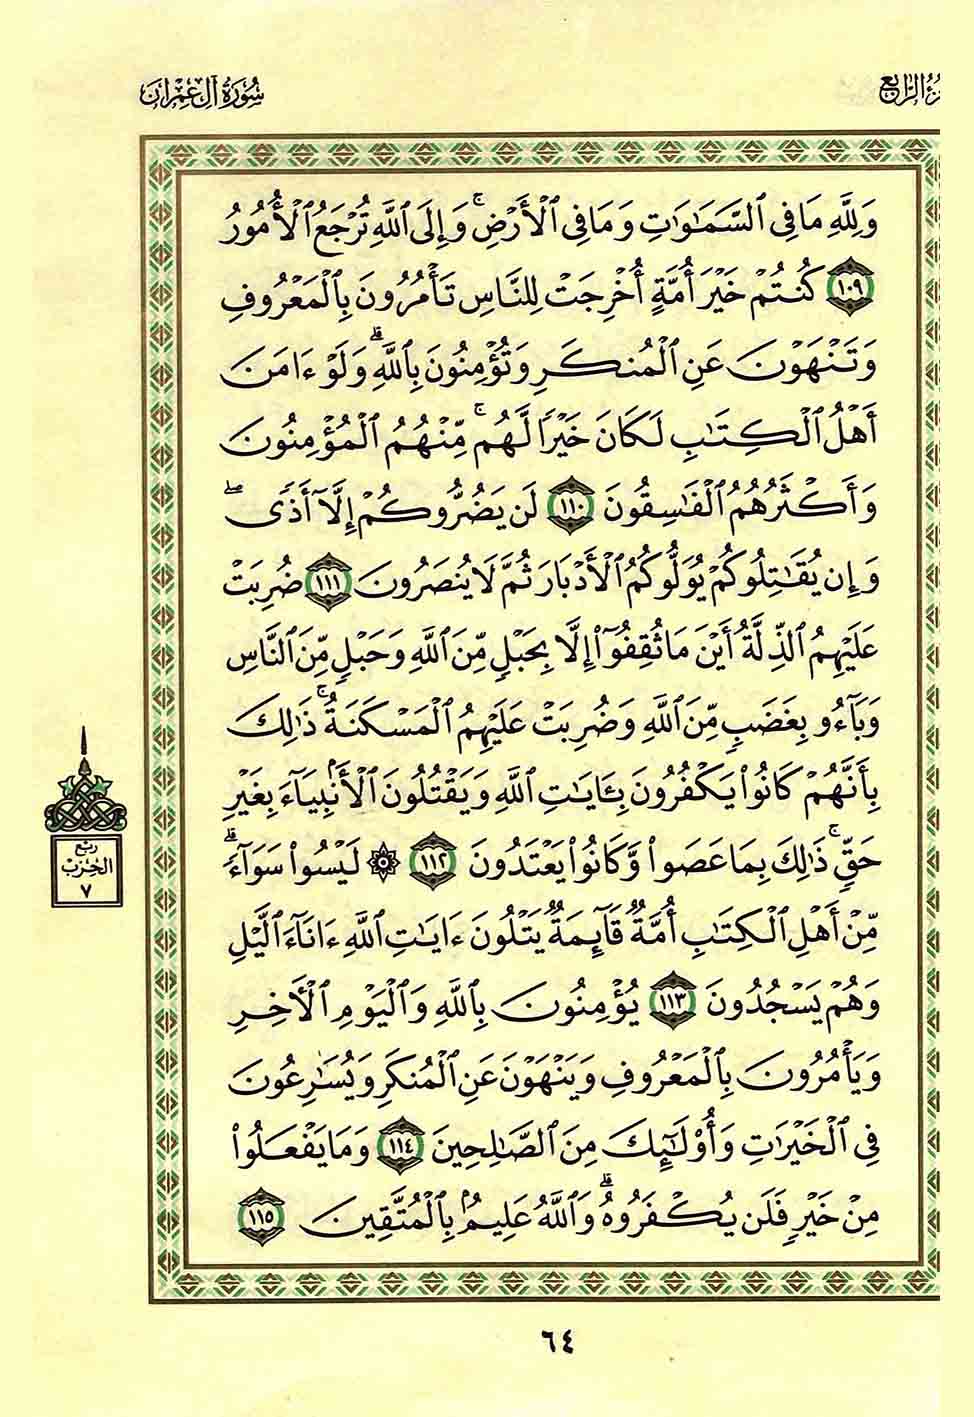 الجزء الرابع
سُورَةُ آلِ عِمْرَانَ
وَلِلَّهِ مَا فِي ٱلسَّمَٰوَٰتِ وَمَا فِي ٱلْأَرْضِۚ وَإِلَى ٱللَّهِ تُرْجَعُ ٱلْأُمُورُ
١٠٩ كُنتُمْ خَيْرَ أُمَّةٍ أُخْرِجَتْ لِلنَّاسِ تَأْمُرُونَ بِٱلْمَعْرُوفِ
وَتَنْهَوْنَ عَنِ ٱلْمُنكَرِ وَتُؤْمِنُونَ بِٱللَّهِۗ وَلَوْ ءَامَنَ
أَهْلُ ٱلْكِتَٰبِ لَكَانَ خَيْرًا لَّهُمۚ مِّنْهُمُ ٱلْمُؤْمِنُونَ
وَأَكْثَرُهُمُ ٱلْفَٰسِقُونَ ١١٠ لَن يَضُرُّوكُمْ إِلَّآ أَذًىۖ
وَإِن يُقَٰتِلُوكُمْ يُوَلُّوكُمُ ٱلْأَدْبَارَ ثُمَّ لَا يُنصَرُونَ ١١١ ضُرِبَتْ
عَلَيْهِمُ ٱلذِّلَّةُ أَيْنَ مَا ثُقِفُوٓا۟ إِلَّا بِحَبْلٍ مِّنَ ٱللَّهِ وَحَبْلٍ مِّنَ ٱلنَّاسِ
وَبَآءُو بِغَضَبٍ مِّنَ ٱللَّهِ وَضُرِبَتْ عَلَيْهِمُ ٱلْمَسْكَنَةُۚ ذَٰلِكَ
بِأَنَّهُمْ كَانُوا۟ يَكْفُرُونَ بِـَٔايَٰتِ ٱللَّهِ وَيَقْتُلُونَ ٱلْأَنۢبِيَآءَ بِغَيْرِ
حَقٍّۚ ذَٰلِكَ بِمَا عَصَوا۟ وَّكَانُوا۟ يَعْتَدُونَ ١١٢ ۞ لَيْسُوا۟ سَوَآءًۗ
مِّنْ أَهْلِ ٱلْكِتَٰبِ أُمَّةٌ قَآئِمَةٌ يَتْلُونَ ءَايَٰتِ ٱللَّهِ ءَانَآءَ ٱلَّيْلِ
وَهُمْ يَسْجُدُونَ ١١٣ يُؤْمِنُونَ بِٱللَّهِ وَٱلْيَوْمِ ٱلْأَخِرِ
وَيَأْمُرُونَ بِٱلْمَعْرُوفِ وَيَنْهَوْنَ عَنِ ٱلْمُنكَرِ وَيُسَٰرِعُونَ
فِي ٱلْخَيْرَٰتِ وَأُو۟لَٰٓئِكَ مِنَ ٱلصَّٰلِحِينَ ١١٤ وَمَا يَفْعَلُوا۟
مِنْ خَيْرٍ فَلَن يُكْفَرُوهُۗ وَٱللَّهُ عَلِيمٌۢ بِٱلْمُتَّقِينَ ١١٥
ربع
الحزب
٧
٦٤